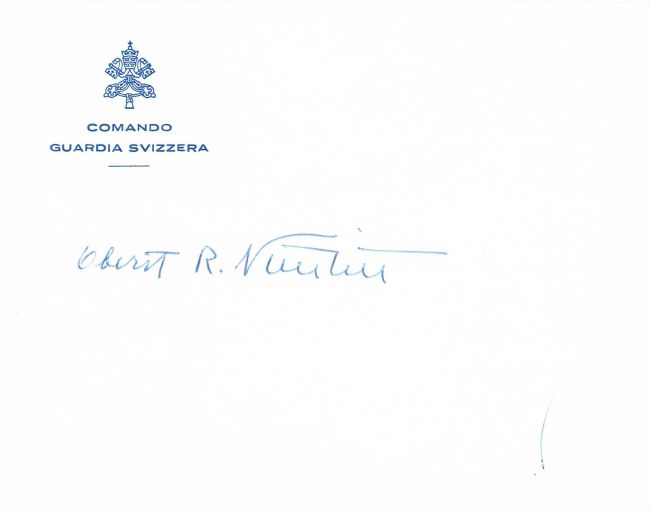 COMANDO
GUARDIA SVIZZERA
Oberst R. Nünlist